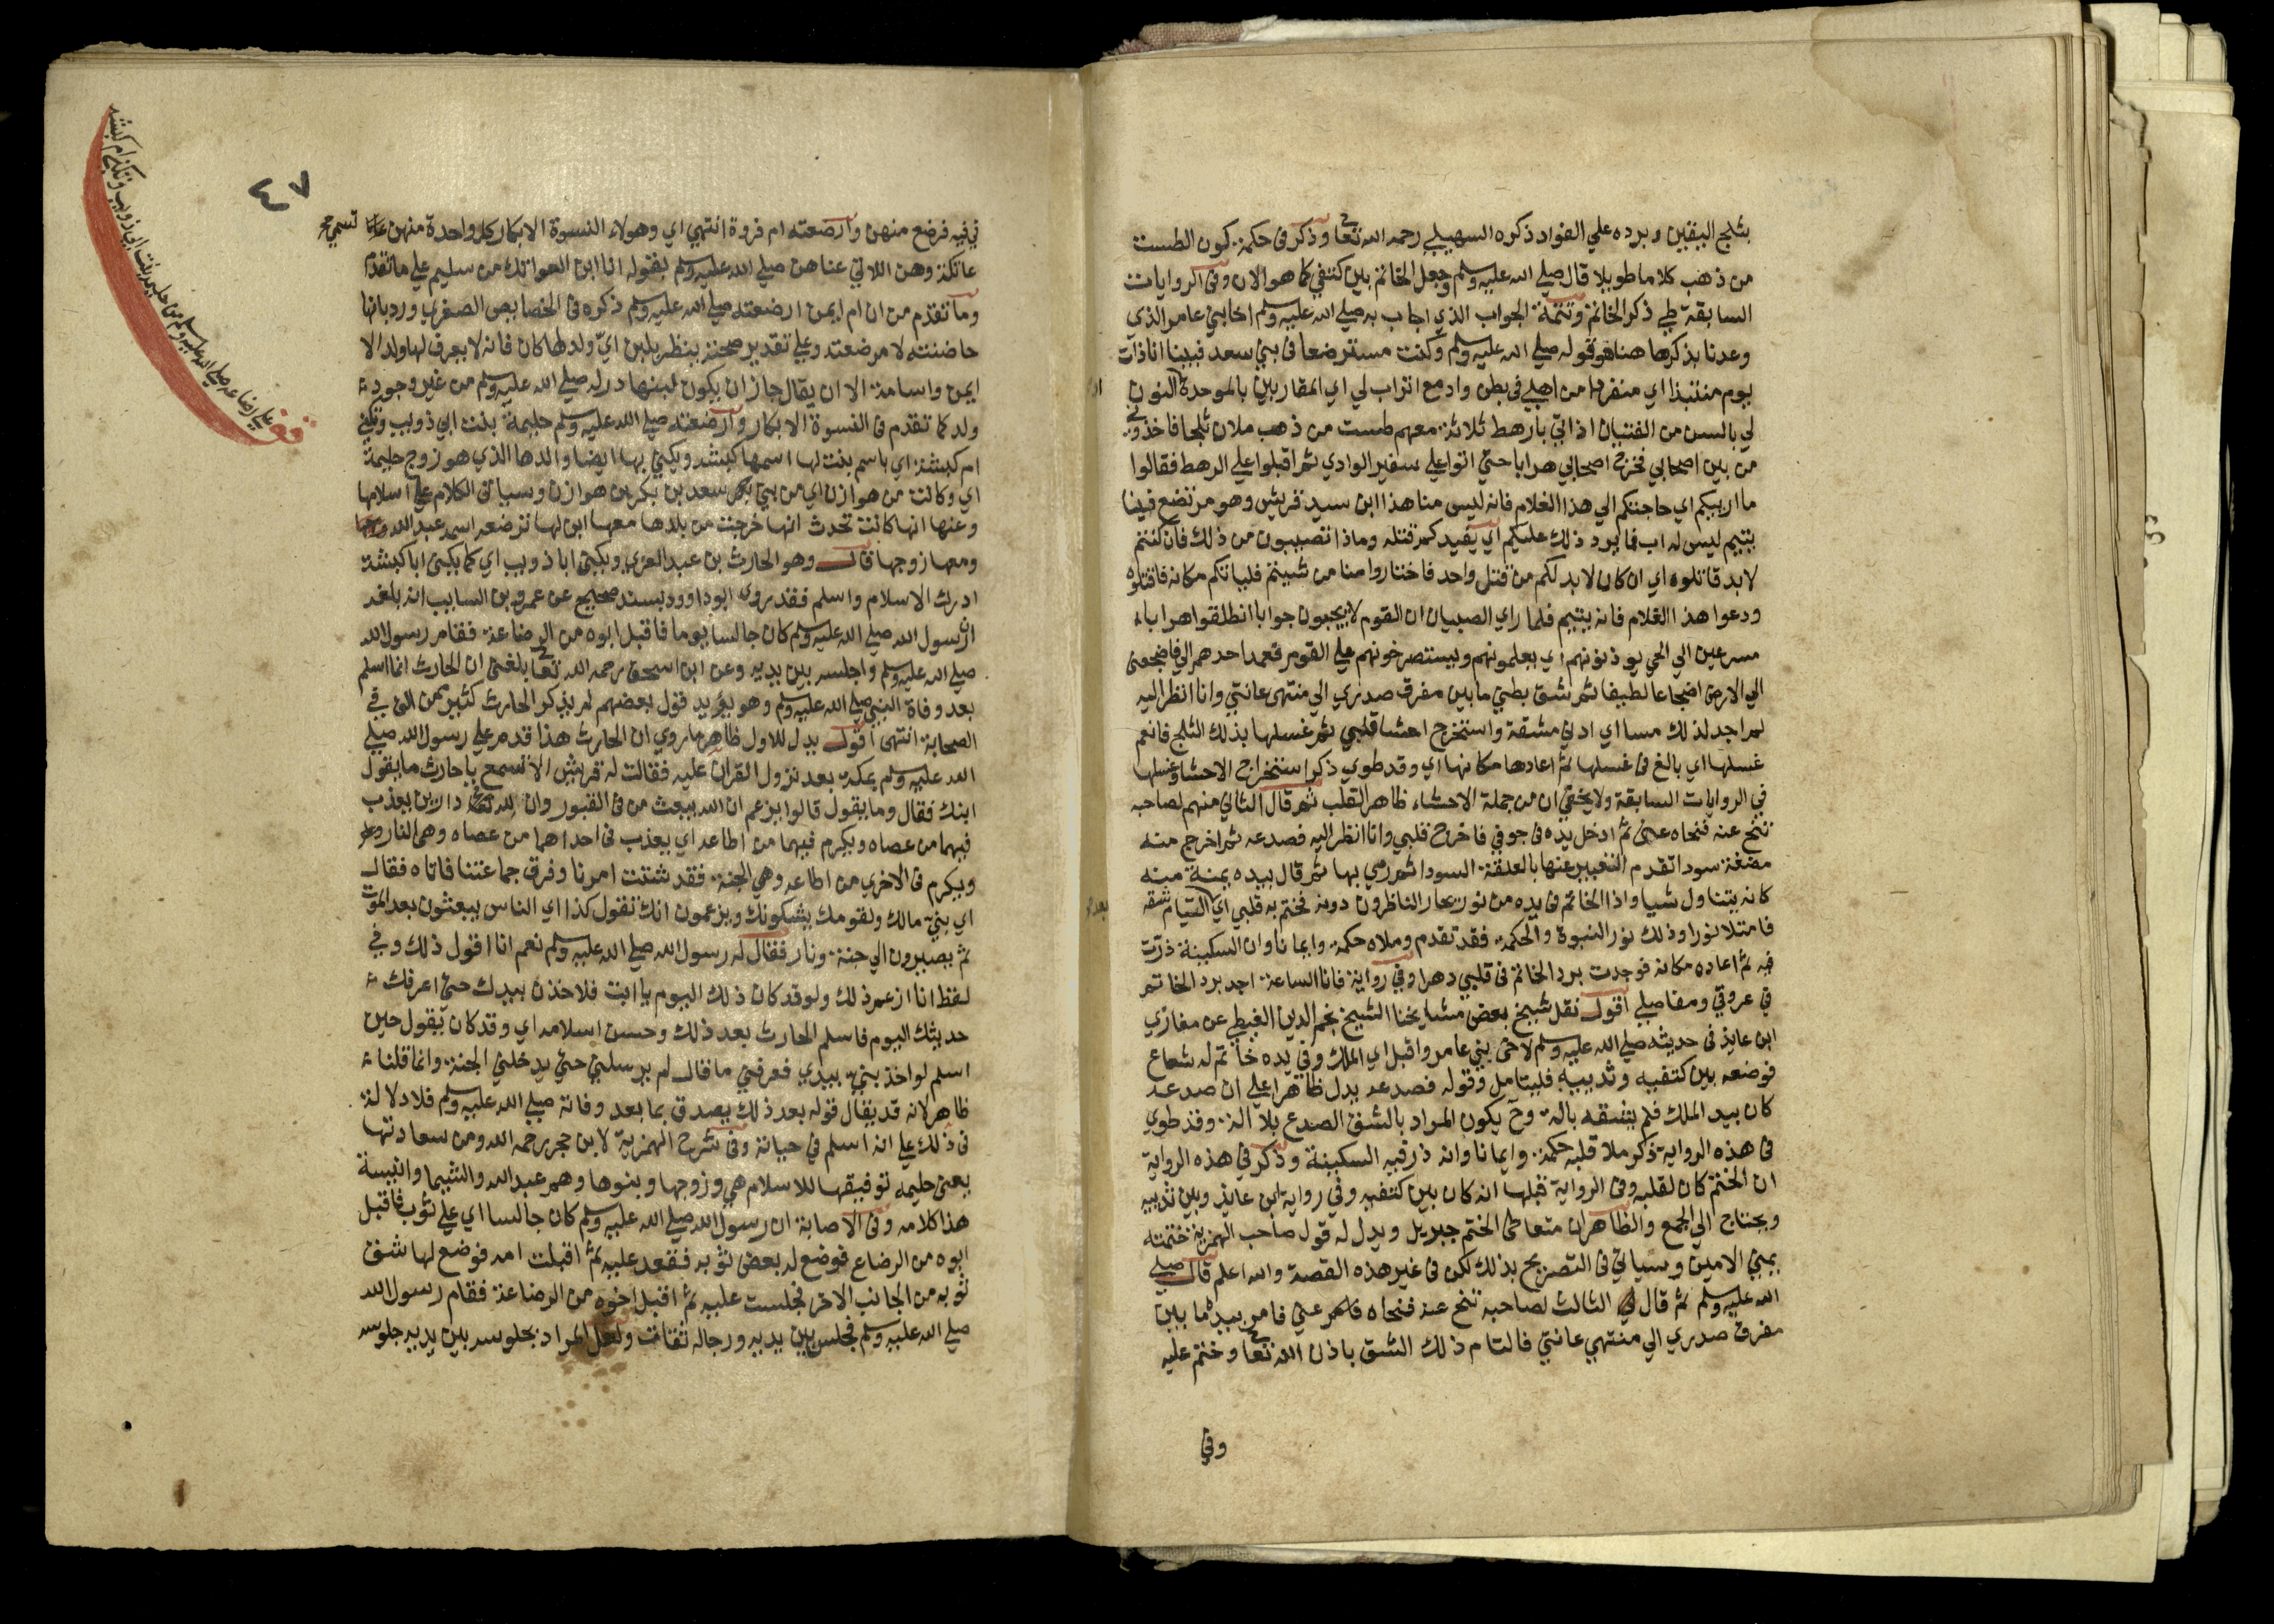 بثلج اليقين وبرده علي الفواد ذكره السهيلي رحمه الله تعا وذكر فى حكمة كون الطست
من ذهب كلاما طويلا قال صلي الله عليه وسلم وجعل الخاتم بين كتفي كما هو الان وفى الروايات
السابقة طي ذكر الخاتم وتتمة الجواب الذي اجاب به صلي الله عليه وسلم اخا بني عامر الذي
وعدنا بذكرها هنا هو قوله صلي الله عليه وسلم وكنت مسترضعا فى بني سعد فبينا انا ذات
يوم منتبذا اي منفردا من اهلي فى بطن واد مع اتراب لي اي المقاربين بالموحدة النون
لي بالسن من الفتيان اذ اتي بارهط ثلاثة معهم طست من ذهب ملان ثلجا فاخذوني
من بين اصحابي فخرج اصحابي هرابا حتي اتوا علي سفير الوادي ثم اقبلوا علي الرهط فقالوا
ما اربكم اي حاجتكم الي هذا الغلام فانه ليس منا هذا ابن سيد قريش وهو مرتضع فينا
يتيم ليس له اب فما يرد ذلك عليكم اي يفيدكم قتله وماذا تصيبون من ذلك فان كنتم
لابد قاتلوه اي ان كان لابد لكم من قتل واحد فاختاروا منا من شيتم فلياتكم مكانه فاقتلوه
ودعوا هذا الغلام فانه يتيم فلما راي الصبيان ان القوم لا يجيبون جوابا انطلقوا هرابا
مسرعين الي الحي يوذنونهم اي يعلمونهم ويستصرخونهم علي القوم فعمد احدهم الي فاضجعنى
الي الارض اضجاعا لطيفا ثم شق بطني ما بين مفرق صدري الي منتهى عانتي وانا انظر اليه
لم اجد لذلك مسا اي ادني مشقة واستخرج احشا قلبي ثم غسلها بذلك الثلج فانعم
غسلها اي بالغ فى غسلها ثم اعادها مكانها اي وقد طوي ذكر استخراج الاحشا وغسلها
في الروايات السابقة ولا يخفي ان من جملة الاحشاء ظاهر القلب ثم قال الثاني منهم لصاحبه
تنح عنه فنحاه عنى ثم ادخل يده فى جوفي فاخرج قلبي وانا انظر اليه فصدعه ثم اخرج منه
مضغة سودا تقدم التعبير عنها بالعلقة السودا ثم رمي بها ثم قال بيده يمنة منه
كانه يتناول شيا واذا الخاتم فى يده من نور يحار الناظرون دونه فختم به قلبي اي التيام شقه
فامتلا نورا وذلك نور النبوة والحكمة فقد تقدم وملاه حكمة وايمانا وان السكينة ذرت
فيه ثم اعاده مكانه فوجدت برد الخاتم فى قلبي دهرا وفي رواية فانا الساعة اجد برد الخاتم
في عروقي ومفاصلي اقول نقل شيخ بعض مشايخنا الشيخ نجم الدين الغيطي عن مغازي
ابن عايذ فى حديثه صلي الله عليه وسلم لاخى بني عامر واقبل اي الملك وفي يده خاتم له شعاع
فوضعه بين كتفيه وثدييه فليتامل وقوله فصدعه يدل ظاهرا علي ان صدعه
كان بيد الملك فلم يشقه بالة وح يكون المراد بالشق الصدع بلا الة وقد طوي
فى هذه الرواية ذكر ملا قلبه حكمة وايمانا وانه ذر فيه السكينة وذكر في هذه الرواية
ان الختم كان لقلبه وفى الرواية قبلها انه كان بين كتفيه وفي رواية ابن عايذ وبين ثدييه
ويحتاج الي الجمع والظاهر ان متعاطي الختم جبريل ويدل له قول صاحب الهمزية ختمته
يمني الامين وسياتي فى التصريح بذلك لكن فى غير هذه القصة والله اعلم قال صلي
الله عليه وسلم ثم قال الثالث لصاحبه تنح عنه فنحاه عني فامر بيده ما بين
مفرق صدري الي منتهي عانتي فالتام ذلك الشق باذن الله تعا وختم عليه
وفي
٤٧
فى فيه فرضع منهن وارضعته ام فروة انتهي اي وهولاء النسوة الابكار كل واحدة منهن تسمى
عاتكة وهن اللاتي عناهن صلي الله عليه وسلم بقوله انا ابن العواتك من سليم علي ما تقدم
وما تقدم من ان ام ايمن ارضعته صلي الله عليه وسلم ذكره فى الخصايص الصغري ورد بانها
حاضنته لا مرضعته وعلي تقدير صحته ينظر بلبن اي ولد لها كان فانه لا يعرف لها ولد الا
ايمن واسامة الا ان يقال جاز ان يكون لبنها در له صلي الله عليه وسلم من غير وجود
ولد كما تقدم فى النسوة الابكار وارضعته صلي الله عليه وسلم حليمة بنت ابي ذويب وتكني
ام كبشة اي باسم بنت لها اسمها كبشة ويكني بها ايضا والدها الذي هو زوج حليمة
اي وكانت من هوازن اي من بني سعد بن بكر بن هوازن وسياتى الكلام علي اسلامها
وعنها انها كانت تحدث انها خرجت من بلدها معها ابن لها ترضعه اسمه عبد الله
ومعها زوجها قال وهو الحارث بن عبد العزي ويكنى ابا ذويب اي كما يكنى ابا كبشة
ادرك الاسلام واسلم فقد روى ابو داوود بسند صحيح عن عمرو بن السايب انه بلغه
ان رسول الله صلي الله عليه وسلم كان جالسا يوما فاقبل ابوه من الرضاعة فقام رسول الله
صلي الله عليه وسلم واجلسه بين يديه وعن ابن اسحق رحمه الله تعا بلغنى ان الحارث انما اسلم
بعد وفاة النبي صلي الله عليه وسلم وهو يؤيد قول بعضهم لم يذكر الحارث كثير ممن الف في
الصحابة انتهى اقول يدل للاول ظاهر ما روي ان الحارث هذا قدم علي رسول الله صلي
الله عليه وسلم بمكة بعد نزول القران عليه فقالت له قريش الا تسمع يا حارث ما يقول
ابنك فقال وما يقول قالوا يزعم ان الله يبعث من فى القبور وان لله دارين يعذب
فيهما من عصاه ويكرم فيهما من اطاعه اي يعذب فى احداهما من عصاه وهى النار
ويكرم فى الاخري من اطاعه وهي الجنة فقد شتت امرنا وفرق جماعتنا فاتاه فقال
اي بني مالك ولقومك يشكونك ويزعمون انك تقول كذا اي الناس يبعثون بعد الموت
ثم يصيرون الي جنة ونار فقال له رسول الله صلي الله عليه وسلم نعم انا اقول ذلك وفي
لفظ انا ازعم ذلك ولو قد كان ذلك اليوم يا ابت فلاخذن بيدك حتى اعرفك
حديثك اليوم فاسلم الحارث بعد ذلك وحسن اسلامه اي وقد كان يقول حين
اسلم لو اخذ بني بيدي فعرفني ما قال لم يرسلني حتي يدخلني الجنة وانما قلنا
ظاهر لانه قد يقال قوله بعد ذلك يصدق بما بعد وفاته صلي الله عليه وسلم فلا دلالة
فى ذلك علي انه اسلم في حياته وفى شرح الهمزية لابن حجر رحمه الله ومن سعادتها
يعنى حليمه توفيقها للاسلام هي وزوجها وبنوها وهم عبد الله والشيما وانيسة
هذا كلامه وفى الاصابة ان رسول الله صلي الله عليه وسلم كان جالسا اي علي ثوب فاقبل
ابوه من الرضاع فوضع له بعض ثوبه فقعد عليه ثم اقبلت امه فوضع لها شق
ثوبه من الجانب الاخر فجلست عليه ثم اقبل اخوه من الرضاعة فقام رسول الله
صلي الله عليه وسلم فجلس بين يديه ورجاله ثقات ولعل المراد بجلوسه بين يديه جلوسه
قف علي رضاعه صلي الله عليه وسلم من حليمه بنت ابي ذويب وتكني ام كبشه